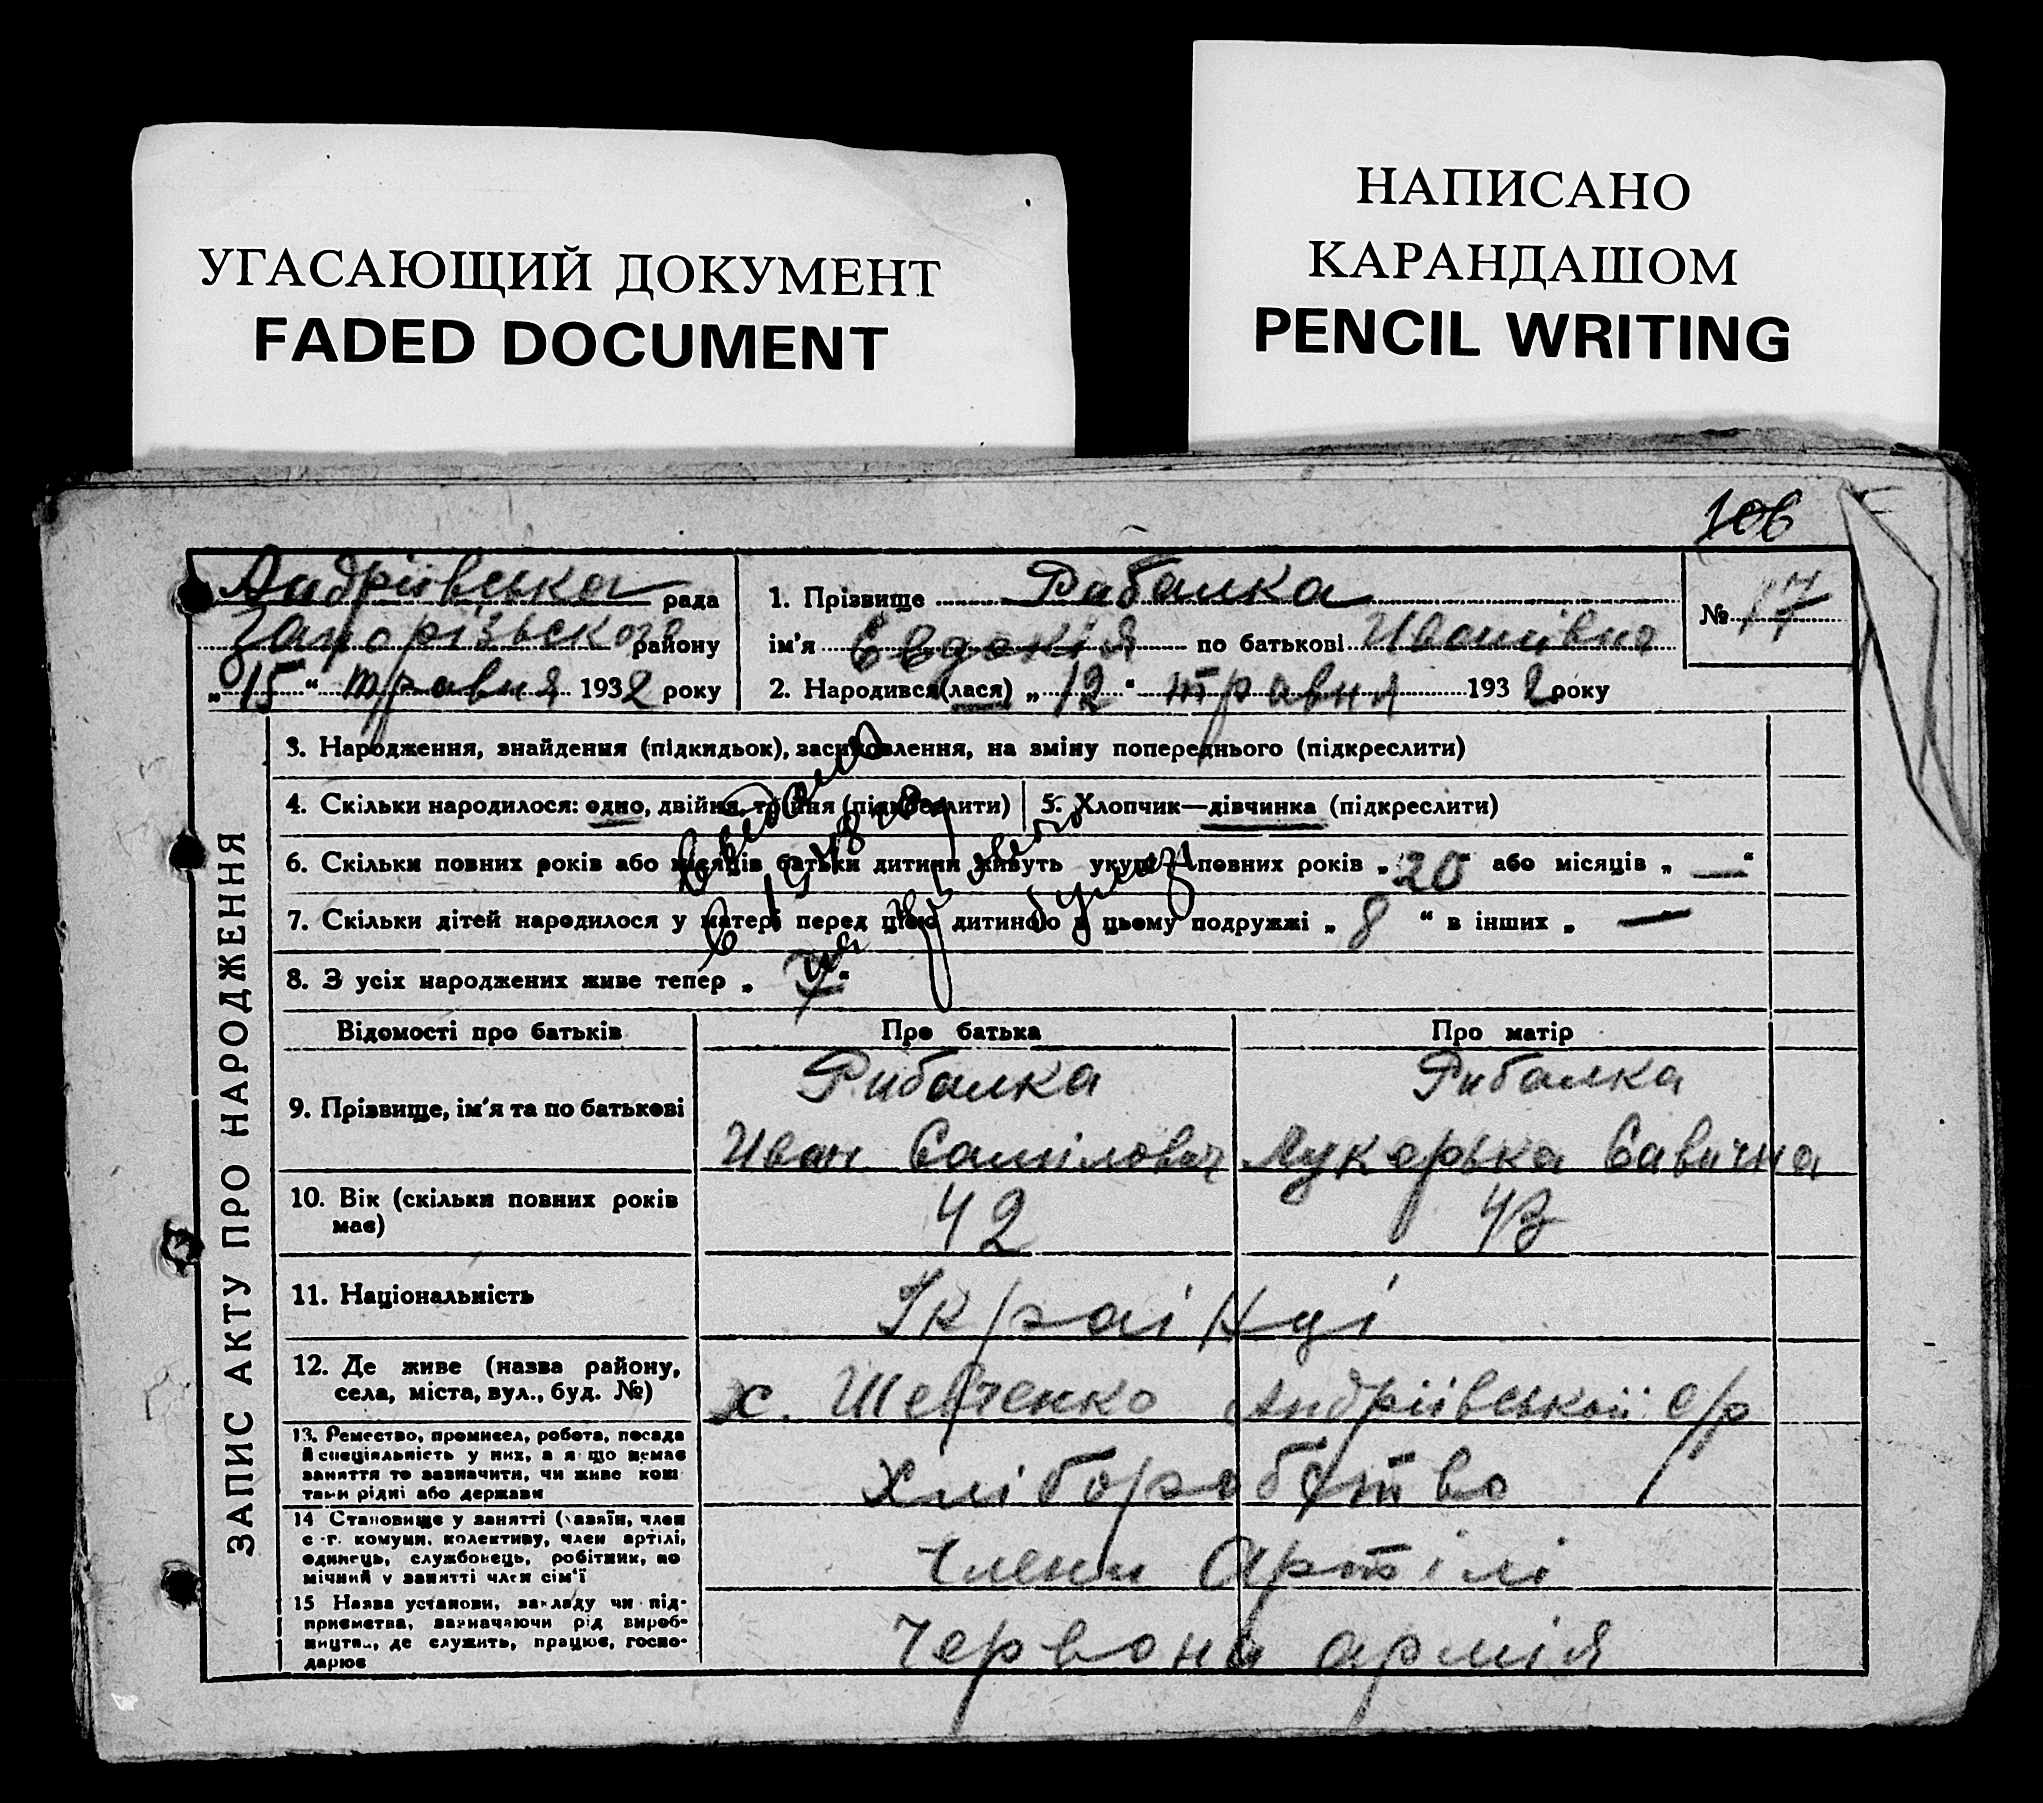 УГАСАЮЩИЙ ДОКУМЕНТ
FADED DOCUMENT
НАПИСАНО
КАРАНДАШОМ
PENCIL WRITING
106
Андріївська рада
Запорізького району
„15“ травня 1932 року
1. Прізвище Рибалка
ім'я Евдокія по батькові Иванівна
2. Народився(лася) „12“ травня 1932 року
№ 17
ЗАПИС АКТУ ПРО НАРОДЖЕННЯ
3. Народження, знайдення (підкидьок), засиновлення, на зміну попереднього (підкреслити)
4. Скільки народилося: одно, двійня, трійня (підкреслити)
5. Хлопчик—дівчинка (підкреслити)
6. Скільки повних років або місяців батьки дитини живуть укупі—повних років „20“ або місяців „—“
7. Скільки дітей народилося у матері перед цією дитиною в цьому подружжі „8“ в інших „—“
8. З усіх народжених живе тепер „7“
Відомості про батьків
Про батька
Про матір
9. Прізвище, ім'я та по батькові
Рибалка
Иван Самілович
Рибалка
Лукерька Савична
10. Вік (скільки повних років
має)
42
43
11. Національність
Українці
12. Де живе (назва району,
села, міста, вул., буд. №)
х. Шевченко Андріївської с/р
13. Ремество, промисел, робота, посада
й спеціяльність у них, а якщо немає
заняття то зазначити, чи живе кош
тами рідні або держави
Хліборобство
14 Становище у занятті (хазяїн, член
с.-г. комуни, колективу, член артілі,
одинець, службовець, робітник, по
мічний у занятті член сім'ї
Члени Артілі
15 Назва установи, закладу чи під-
приємства, зазначаючи рід вироб-
ництва, де служить, працює, госпо-
дарює
Червона армія